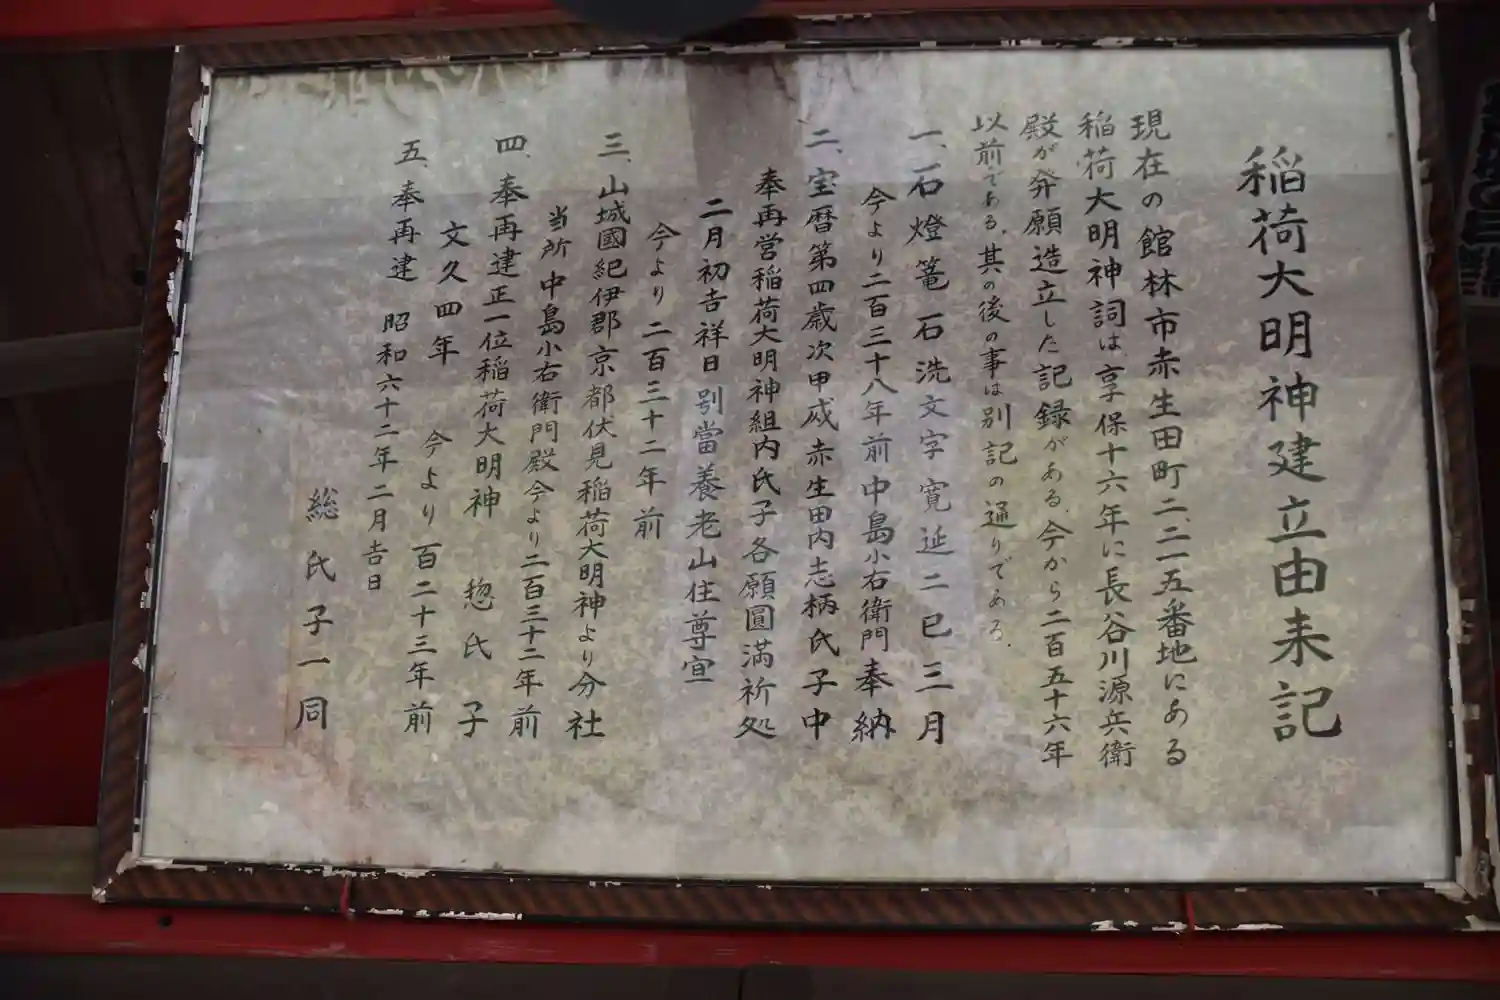 稲荷大明神建立由来記
現在の館林市赤生田町二、二一五番地にある
稲荷大明神詞は、享保十六年に長谷川源兵衛
殿が発願造立した記録がある。今から二百五十六年
以前である。其の後の事は別記の通りである。
一、石燈篭 石洗文字寛延二巳三月
今より二百三十八年前中島小右衛門奉納
二、宝暦第四歳次甲戌赤生田内志柄氏子中
奉再営稲荷大明神組内氏子各願圓満祈処
二月初吉祥日別當養老山住尊宣
今より二百三十二年前
三、山城國紀伊郡京都伏見稲荷大明神より分社
当所中島小右衛門殿今より二百三十二年前
四、奉再建正一位稲荷大明神 惣氏子
文久四年 今より百二十三年前
五、奉再建 昭和六十二年二月吉日
総氏子一同